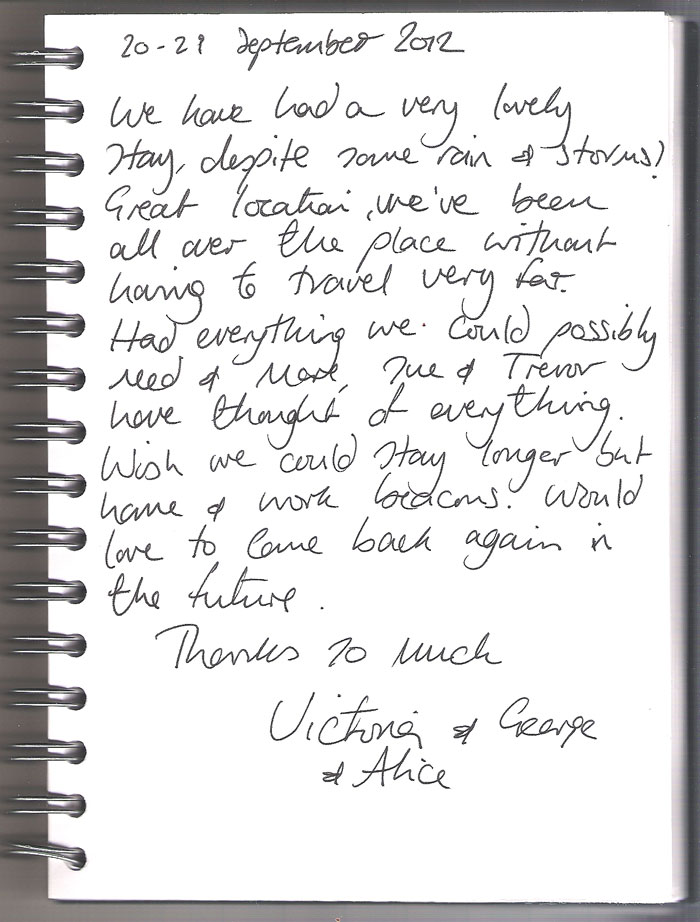 20-29 September 2012
We have had a very lovely
stay, despite some rain & storms!
Great location, we've been
all over the place without
having to travel very far.
Had everything we could possibly
need & more, Sue & Trevor
have thought of everything.
Wish we could stay longer but
home & work beacons. Would
love to come back again in
the future.
Thanks so much
Victoria & George
& Alice